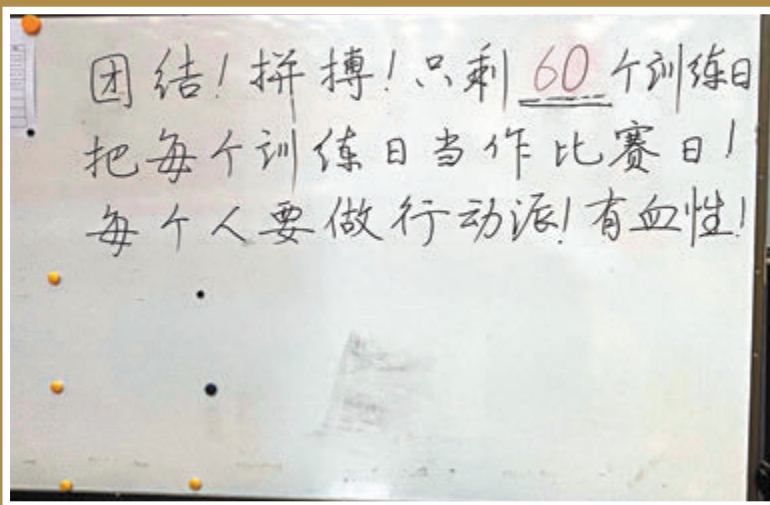 团结!拼搏!只剩 60 个训练日
把每个训练日当作比赛日!
每个人要做行动派!有血性!